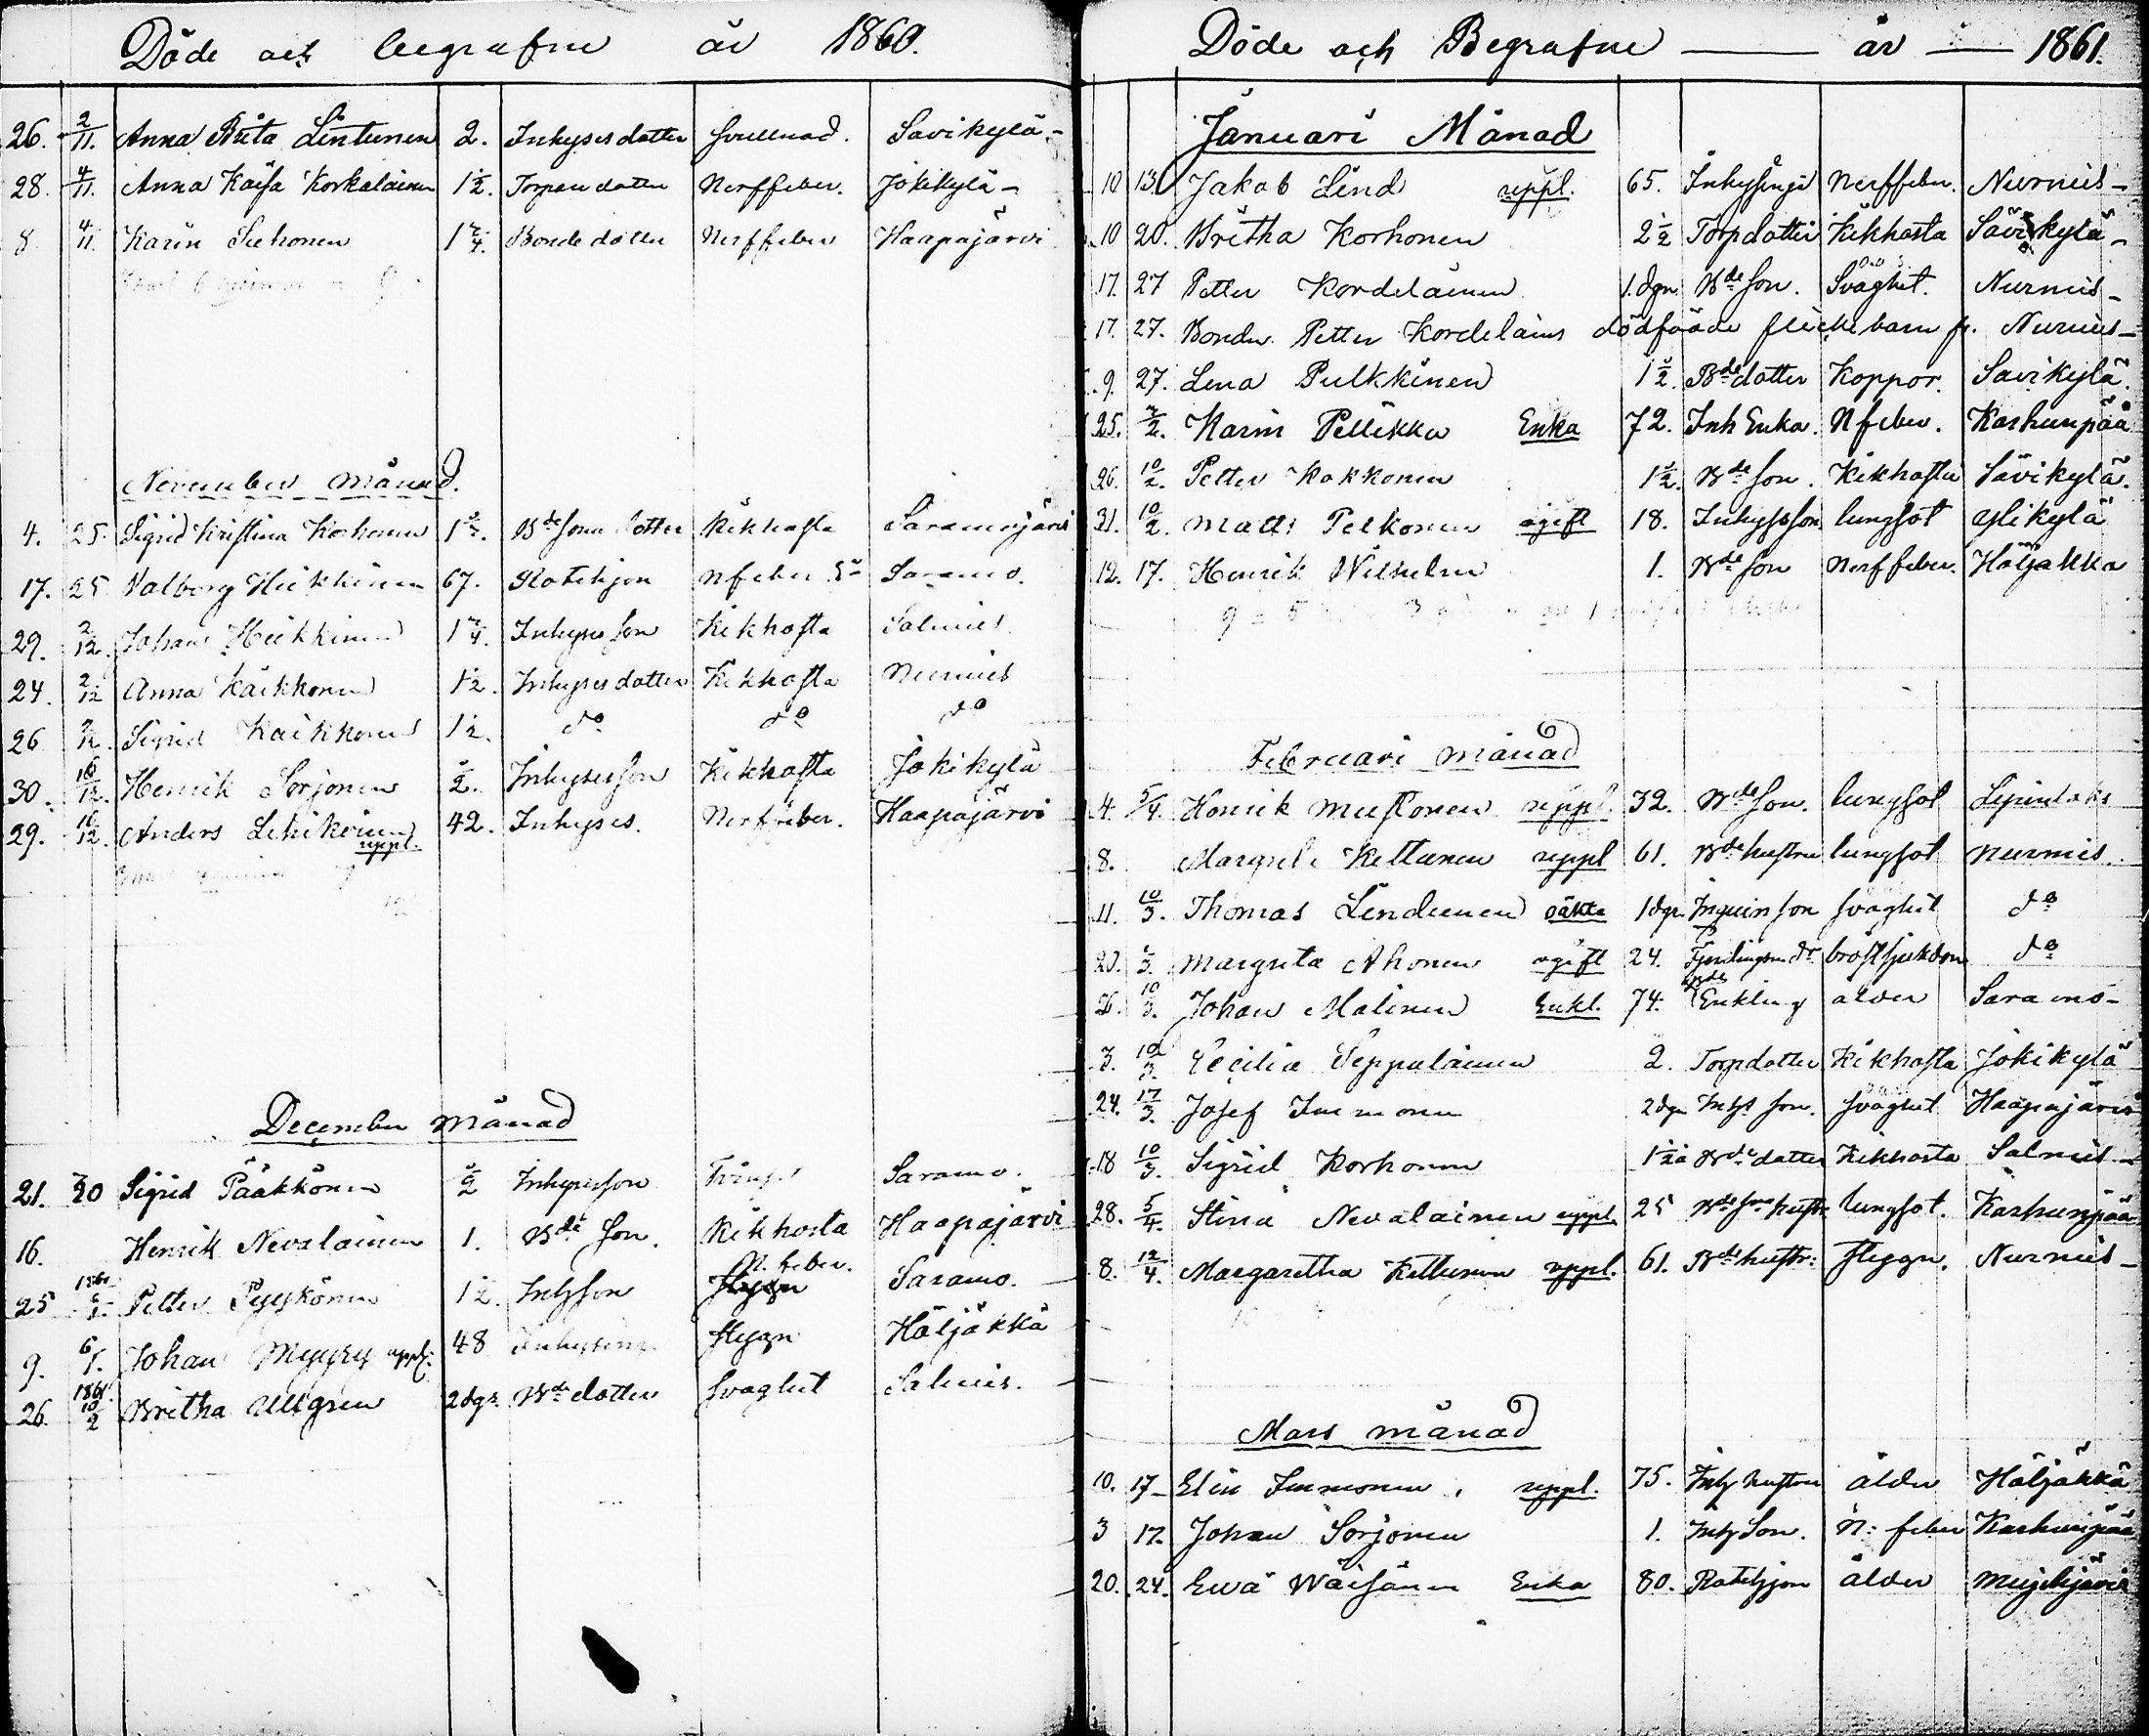 Döde och begrafne år 1860.
26. 2/11. Anna Brita Lintunen 2. Inhyses dotter svullnad. Savikylä -
28. 4/11. Anna Kaisa Korkalainen 1 1/2. Torpare dotter Nerffeber. Jokikylä -
8 4/11. Karin Suhonen 1 1/4. Bonde dotter Nerffeber Haapajärvi
November månad.
4. 25. Sigrid Kristina Korhonen 1 1/2. Bde sons dotter Kikhosta Saramojärvi
17. 25 Valborg Heikkinen 67. Rotehjon nfeber Saramo.
29. 2/12. Johan Heikkinen 1 1/4. Inhyses son Kikhosta Salmis
24. 2/12 Anna Kaikkonen 1 1/2. Inhyses dotter Kikhosta Nurmis
26 2/12. Sigrid Kaikkonen 1 1/2. do do do
30. 16/12. Henrik Sorjonen 1/2. Inhyses son Kikhosta Jokikylä
29. 16/12. Anders Lehikoinen uppl. 42. Inhyses. Nerffeber. Haapajärvi
December månad
21. 30 Sigrid Pääkkönen 1/2 Inhyses son Saramo.
16. Henrik Nevalainen 1. Bde son. Kikhosta Haapajärvi
25 1861 6/1. Petter Pyykönen 1 1/2. Inhson N. feber. Saramo.
9. 6/1. Johan Myyry uppl. 48 Inhysing stygn Höljäkkä
26. 1861 10/2 Britha Ullgren 2 dgr. Bde dotter svaghet Salmis.
Döde och Begrafne — år — 1861.
Januari Månad
10 13. Jakob Lind uppl. 65. Inhysing Nerffeber. Nurmis -
10 20. Britha Korhonen 2 1/2 Torpdotter Kikhosta Savikylä -
17. 27 Petter Kordelainen 1. dgn. Bde son. Svaghet. Nurmis -
17. 27. Bonden Petter Kordelains dödfödde flickebarn fr. Nurmis -
9. 27. Lena Pulkkinen 1 1/2. Bde dotter Koppor. Savikylä.
25. 2/2. Karin Pellikka Enka 72. Inh Enka. Nfeber. Karhunpää
26. 10/2. Petter Kokkonen 1 1/2. Bde son. Kikhosta Savikylä.
31. 10/2. Matts Pelkonen ogift 18. Inhysson lungsot Ylikylä
12. 17. Henrik Wilhelm 1. Bde son Nerffeber. Höljäkkä
Februari månad
4. 5/4. Henrik Mustonen uppl. 32. Bde son. lungsot Lipinlaks
8. Margreta Kettunen uppl 61. Bde hustru lungsot Nurmis.
11. 10/3. Thomas Lindunen oäkta 1 dgn son svaghet do
20. 3/3. Margreta Ahonen ogift 24. bröstsjukdom do
10/3. Johan Malinen Enkl. 74. Bde Enkling ålder Saramo -
3. 10/3. Cecilia Seppäläinen 2. Torpdotter Kikhosta Jokikylä
24. 17/3. Josef Immonen 2 dgr Inhs son. svaghet Haapajärvi
18 10/3. Sigrid Korhonen 1 1/2 a Bde dotter Kikhosta Salmis -
28. 5/4. Stina Nevalainen uppl. 25 Bde sons hustr. lungsot. Karhunpää
8. 12/4. Margaretha Kettunen uppl. 61. Bde hustr: stygn. Nurmis -
Mars månad
10. 17 - Elin Immonen uppl. 75. Inh hustru ålder Höljäkkä
3 17. Johan Sorjonen 1. Inh Son. N: feber Karhunpää
20. 24. Ewa Wäisänen Enka 80. Rotehjon ålder Mujejärvi